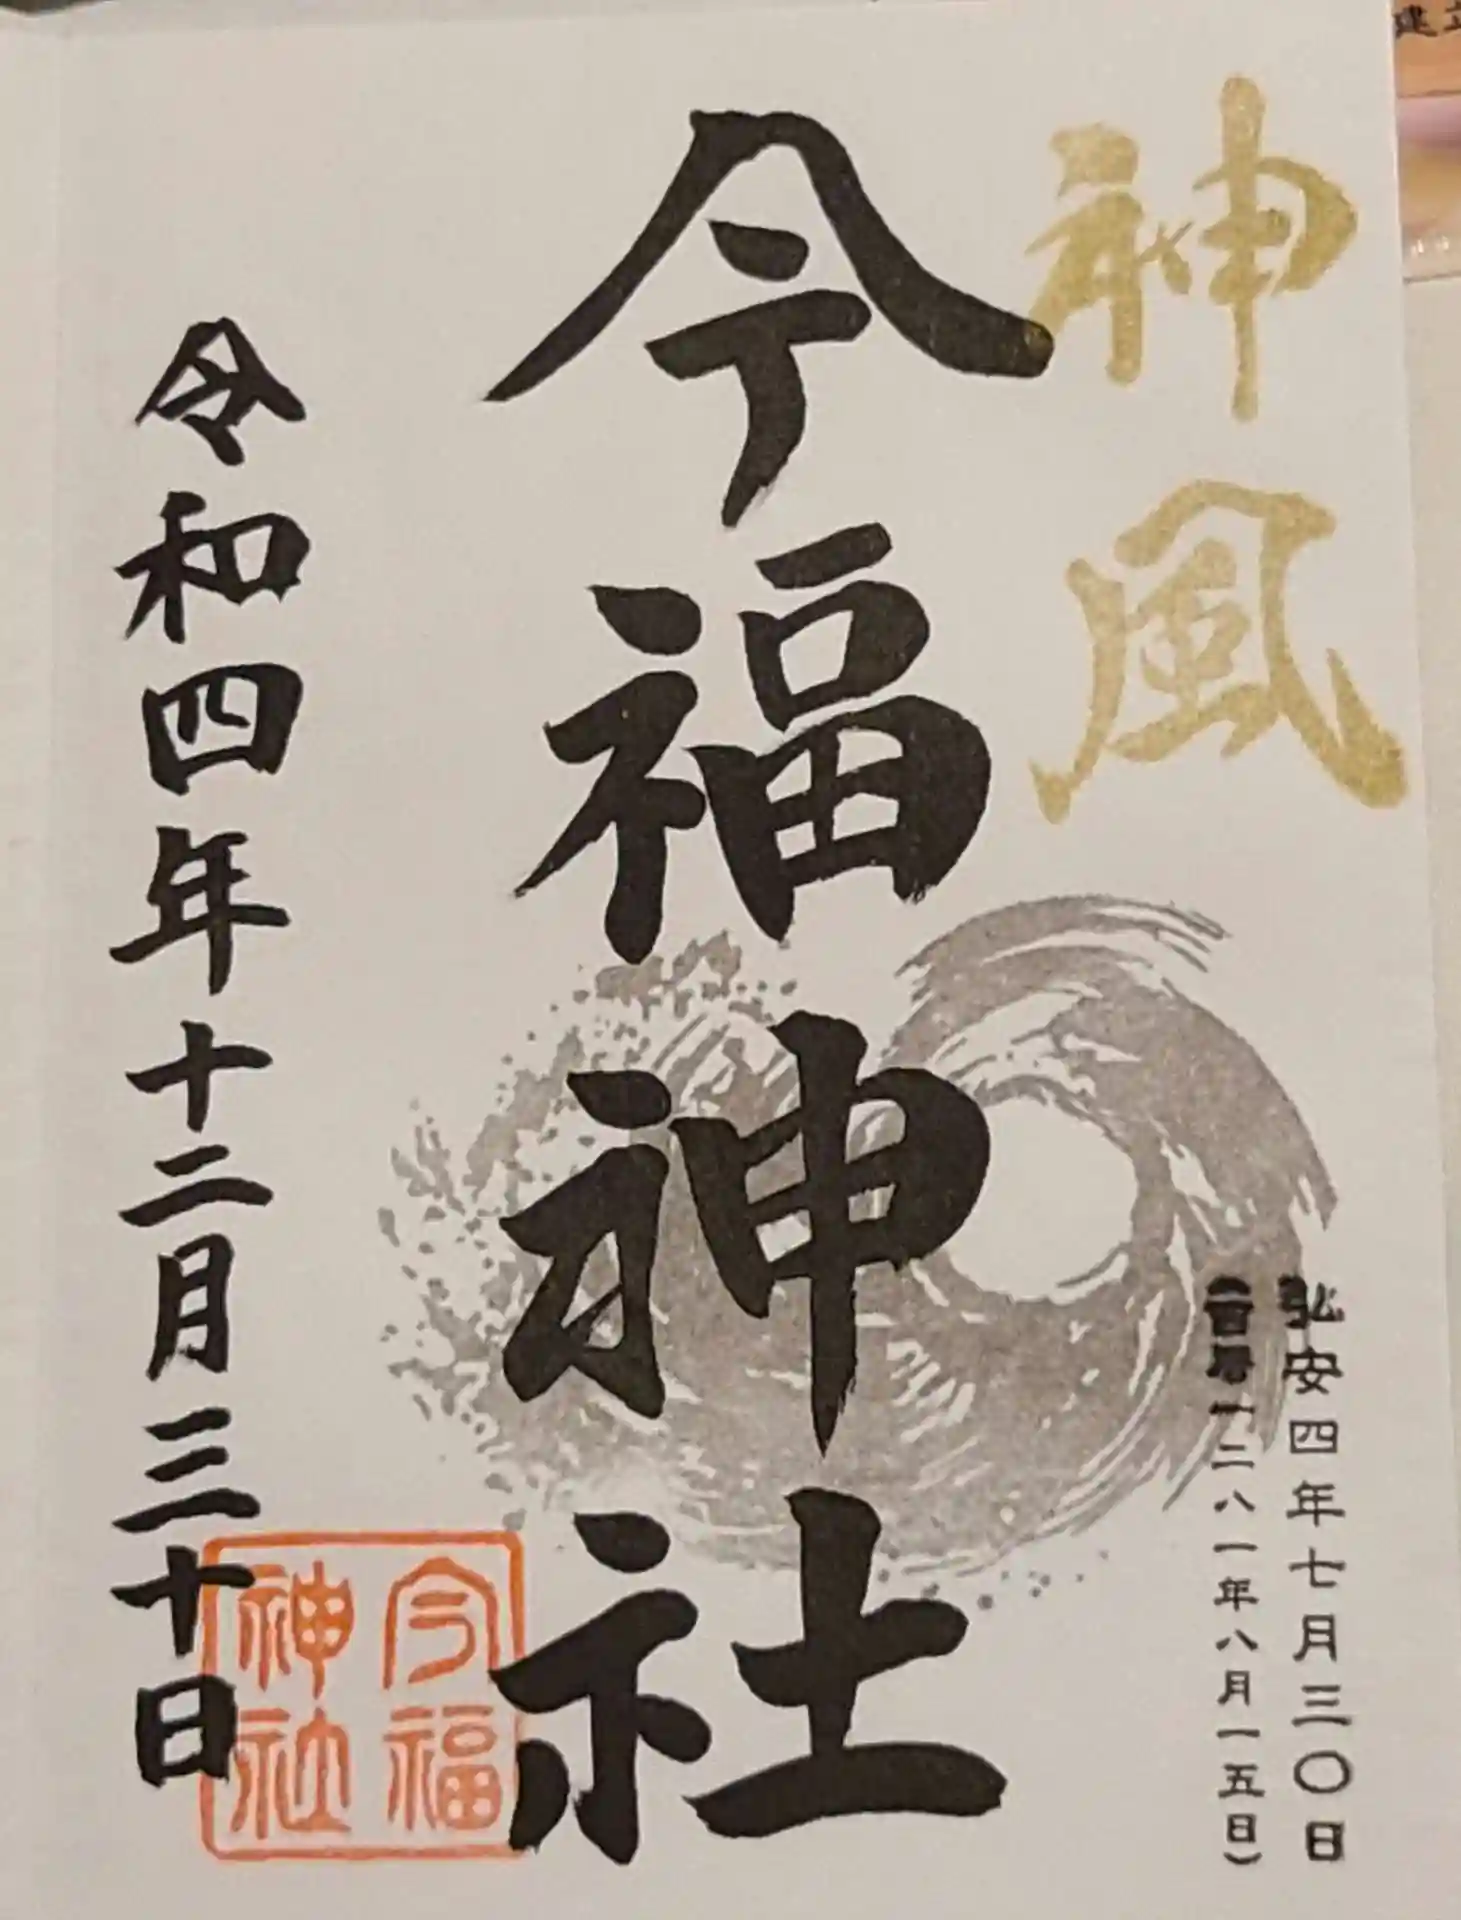 神風
弘安四年七月三〇日
(西暦一二八一年八月一五日)
今福神社
令和四年十二月三十日
今福
神社
建立